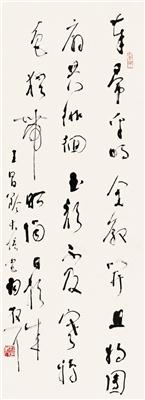 奉帚平明金殿开且将团
扇共徘徊玉颜不及寒鸦
色犹带昭阳日影来
王昌龄长信怨